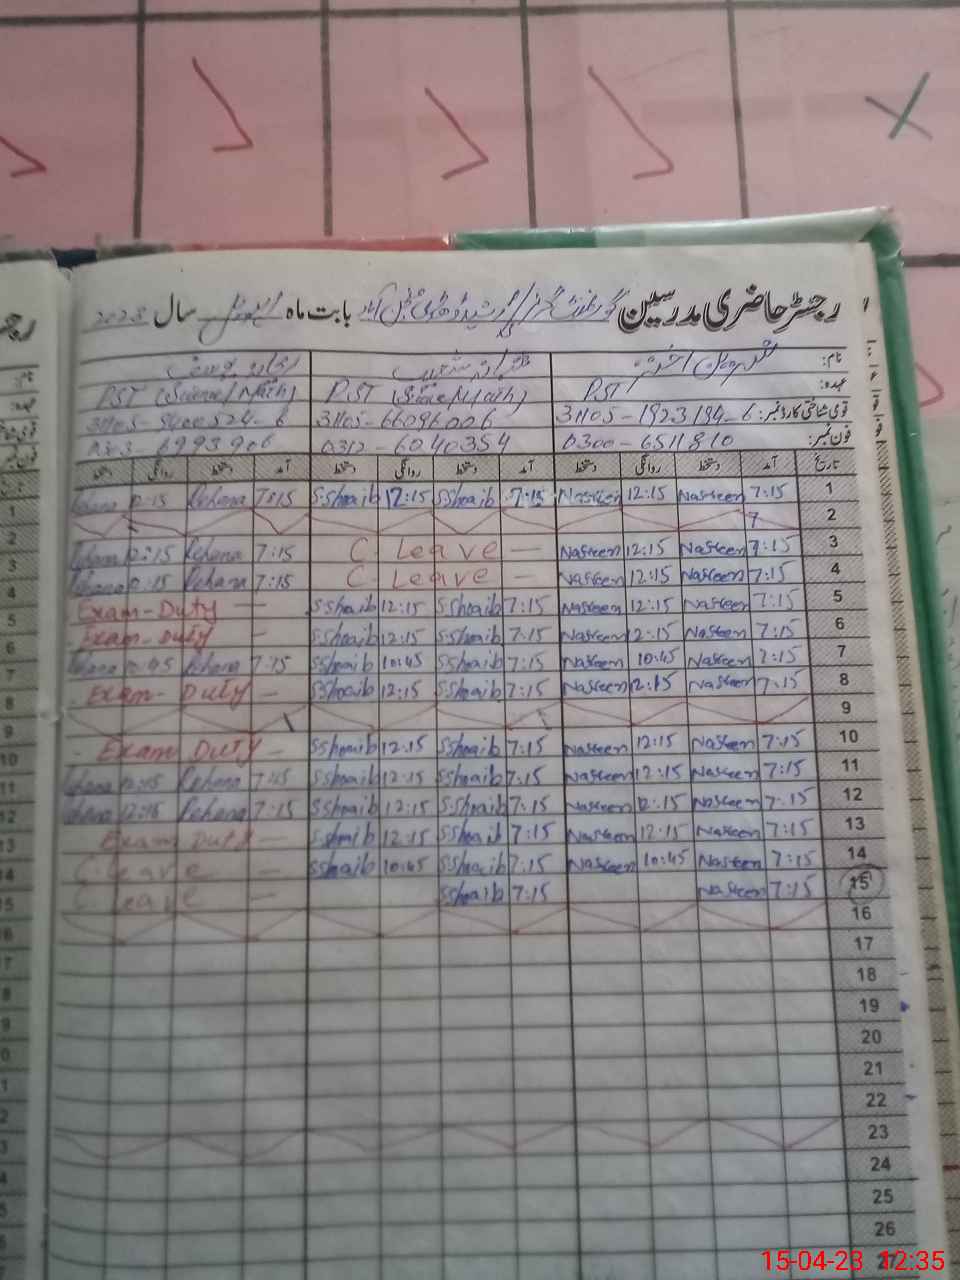 رجسٹر حاضری مدرسین گورنمنٹ گرلز بابت ماہ اپریل سال 2023
نام:
عہدہ: PST PST (Science/Math) PST (Science/Math)
قومی شناختی کارڈ نمبر: 31105-1923194-6 31105-66096006 31105-9400524-6
فون نمبر: 0300-6511810 0312-6040354 0303-6993906
تاریخ آمد دستخط روانگی دستخط آمد دستخط روانگی دستخط آمد دستخط روانگی دستخط
1 7:15 Nasreen 12:15 Nasreen 7:15 SShoaib 12:15 SShoaib 7:15 Rehana 12:15 Rehana
2
3 7:15 Nasreen 12:15 Nasreen C. Leave — 7:15 Rehana 12:15 Rehana
4 7:15 Nasreen 12:15 Nasreen C. Leave — 7:15 Rehana 12:15 Rehana
5 7:15 Nasreen 12:15 Nasreen 7:15 SShoaib 12:15 SShoaib Exam-Duty —
6 7:15 Nasreen 12:15 Nasreen 7:15 SShoaib 12:15 SShoaib Exam-Duty —
7 7:15 Nasreen 10:45 Nasreen 7:15 SShoaib 10:45 SShoaib 7:15 Rehana 10:45 Rehana
8 7:15 Nasreen 12:15 Nasreen 7:15 SShoaib 12:15 SShoaib Exam-Duty —
9
10 7:15 Nasreen 12:15 Nasreen 7:15 SShoaib 12:15 SShoaib Exam Duty —
11 7:15 Nasreen 12:15 Nasreen 7:15 SShoaib 12:15 SShoaib Rehana Rehana
12 7:15 Nasreen 12:15 Nasreen 7:15 SShoaib 12:15 SShoaib 7:15 Rehana Rehana
13 7:15 Nasreen 12:15 Nasreen 7:15 SShoaib 12:15 SShoaib Exam Duty —
14 7:15 Nasreen 10:45 Nasreen 7:15 SShoaib 10:45 SShoaib C. Leave —
15 7:15 Nasreen 7:15 SShoaib C. Leave —
16
17
18
19
20
21
22
23
24
25
26
27
15-04-23 12:35